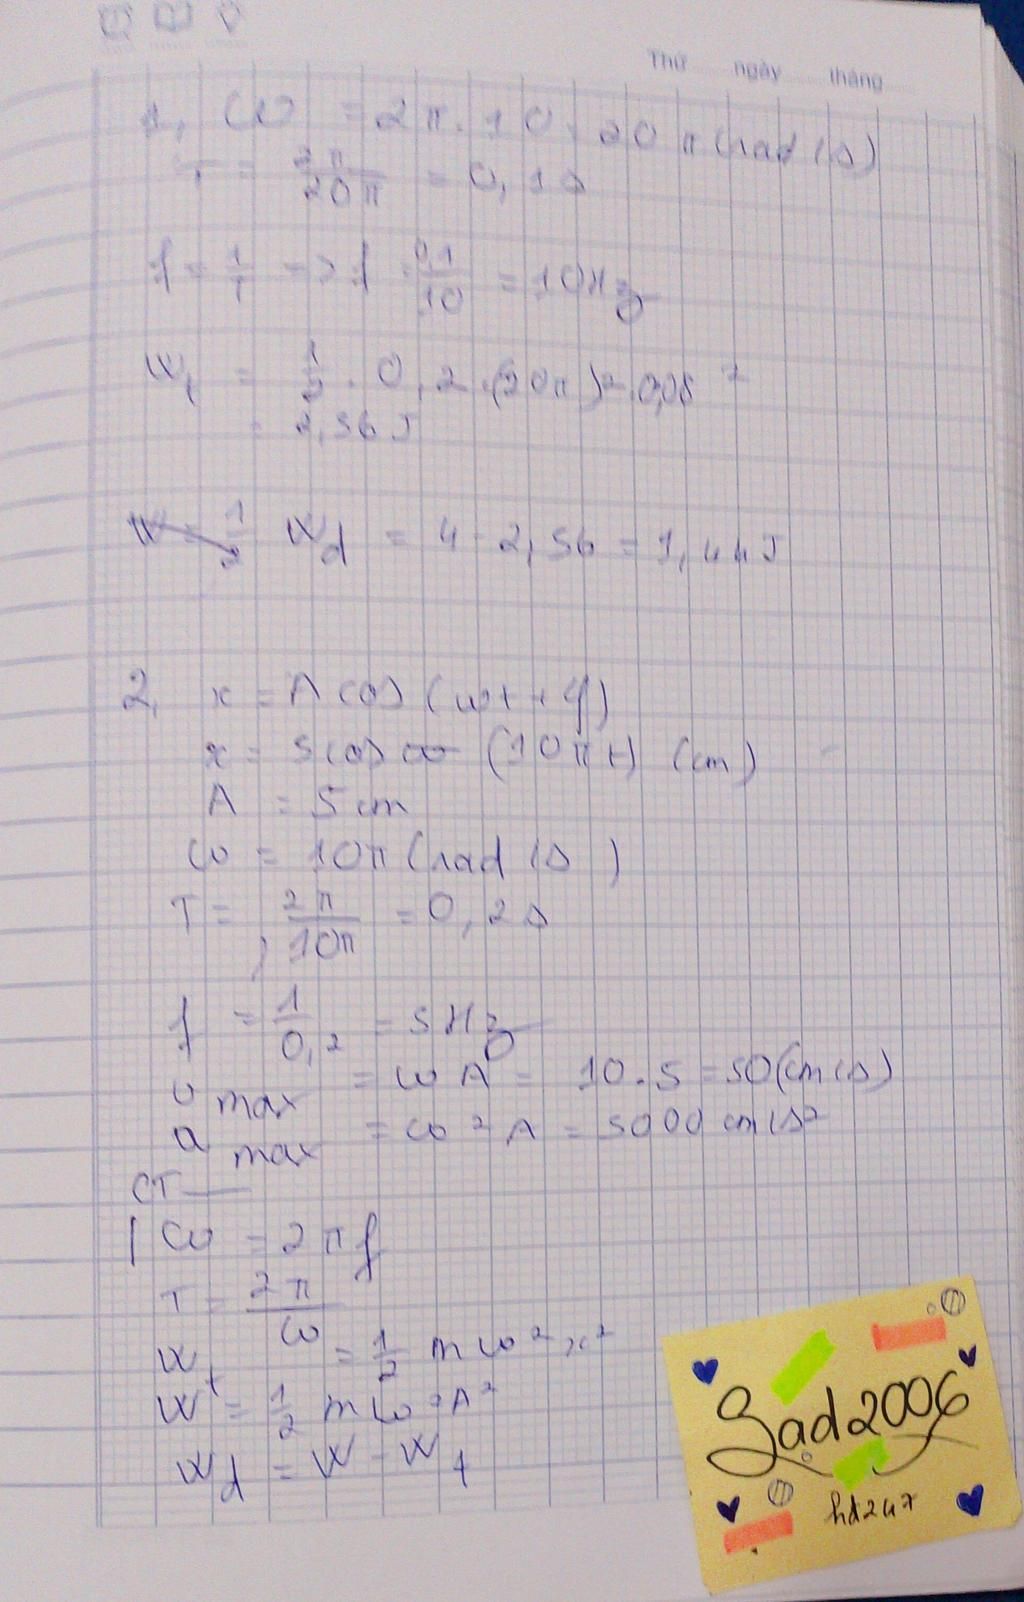 Thứ ngày tháng
1, ω = 2π.10 = 20π (rad/s)
T = 2π/20π = 0,1s
f = 1/T => f = 0,1/10 = 10Hz
Wt = 1/2 . 0,2 .(20π)² . 0,08²
= 2,56J
Wđ = 4 - 2,56 = 1,44J
2, x = Acos(ωt + φ)
x = 5cos (10πt) (cm)
A = 5cm
ω = 10π (rad/s)
T = 2π/10π = 0,2s
f = 1/0,2 = 5Hz
v max = ωA = 10.5 = 50(cm/s)
a max = ω²A = 5000 cm/s²
CT
1 ω = 2πf
T = 2π/ω
Wt = 1/2 mω²x²
W = 1/2 mω²A²
Wđ = W - Wt
Sad2006
hd247